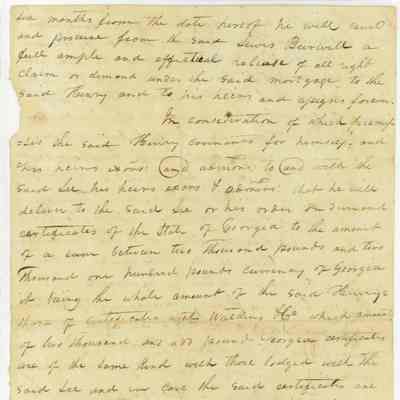 six months from the date hereof he will cause
and procure from the said Lewis Burwell a
full ample and effectual release of all right
claim or demand under the said mortgage to the
said Henry and to his heirs and assigns forever.
In consideration of which
the said Henry covenants for himself and
his heirs exōrs and admōrs to and with the
said Lee his heirs exōrs & admōrs that he will
deliver to the said Lee or his order on demand
certificates of the State of Georgia to the amount
of a sum between two thousand pounds and two
thousand one hundred pounds currency of Georgia
it being the whole amount of the said Henrys
share of certificates with Watkins & Co which
of two thousand and odd pounds Georgia certificates
are of the same kind with those lodged with the
said Lee and in case the said certificates are